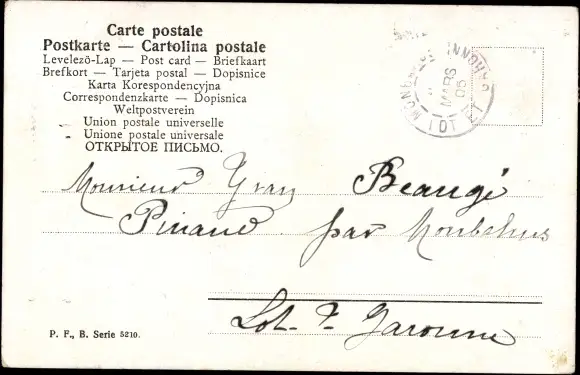 Carte postale
Postkarte — Cartolina postale
Levelezö-Lap — Post card — Briefkaart
Brefkort — Tarjeta postal — Dopisnice
Karta Korespondencyjna
Correspondenzkarte — Dopisnica
Weltpostverein
Union postale universelle
Unione postale universale
ОТКРЫТОЕ ПИСЬМО.
MARS
05
LOT ET
Monsieur Beaugé
par
Lot-&-Garonne
P. F., B. Serie 5210.